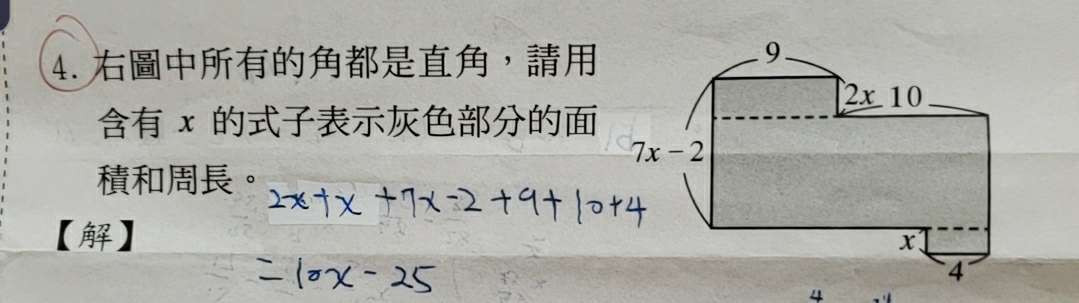 4. 右圖中所有的角都是直角，請用
含有 x 的式子表示灰色部分的面
積和周長。
【解】
2x+x+7x-2+9+10+4
=10x-25
9
2x 10
7x-2
x
4
4